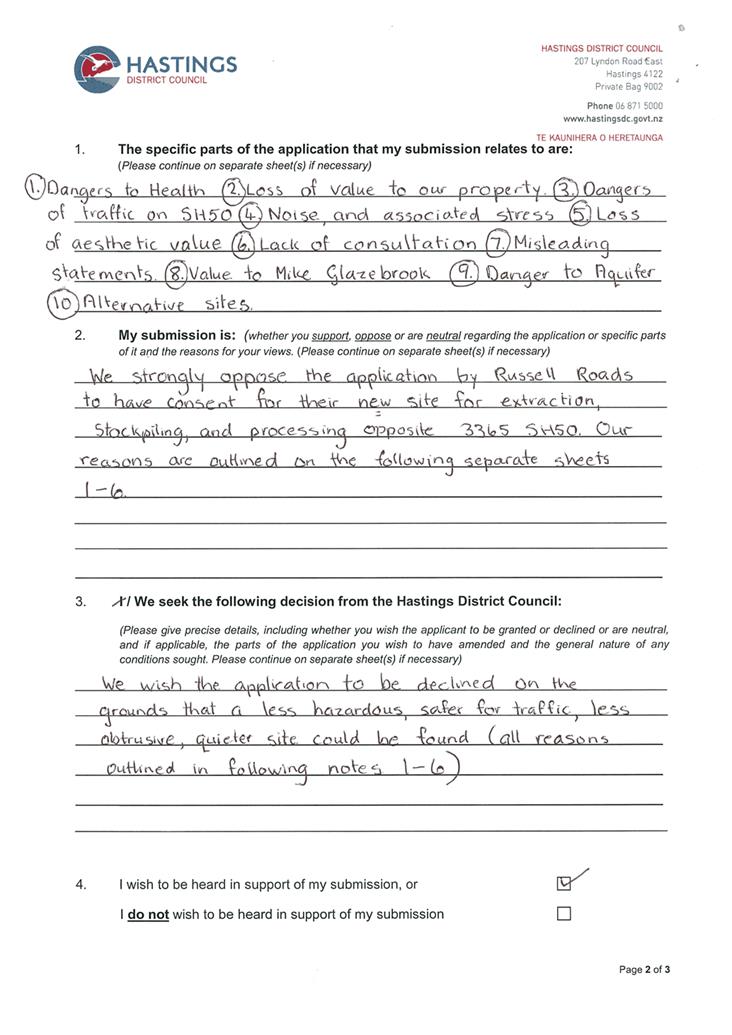 HASTINGS
DISTRICT COUNCIL
HASTINGS DISTRICT COUNCIL
207 Lyndon Road East
Hastings 4122
Private Bag 9002
Phone 06 871 5000
www.hastingsdc.govt.nz
TE KAUNIHERA O HERETAUNGA
1. The specific parts of the application that my submission relates to are:
(Please continue on separate sheet(s) if necessary)
1. Dangers to Health 2. Loss of value to our property. 3. Dangers
of traffic on SH50 4. Noise, and associated stress 5. Loss
of aesthetic value 6. Lack of consultation 7. Misleading
statements. 8. Value to Mike Glazebrook 9. Danger to Aquifer
10 Alternative sites.
2. My submission is: (whether you support, oppose or are neutral regarding the application or specific parts
of it and the reasons for your views. (Please continue on separate sheet(s) if necessary)
We strongly oppose the application by Russell Roads
to have consent for their new site for extraction,
stockpiling, and processing opposite 3365 SH50. Our
reasons are outlined on the following separate sheets
1-6.
3. I/ We seek the following decision from the Hastings District Council:
(Please give precise details, including whether you wish the applicant to be granted or declined or are neutral,
and if applicable, the parts of the application you wish to have amended and the general nature of any
conditions sought. Please continue on separate sheet(s) if necessary)
We wish the application to be declined on the
grounds that a less hazardous, safer for traffic, less
obtrusive, quieter site could be found (all reasons
outlined in following notes 1-6)
4. I wish to be heard in support of my submission, or
I do not wish to be heard in support of my submission
Page 2 of 3